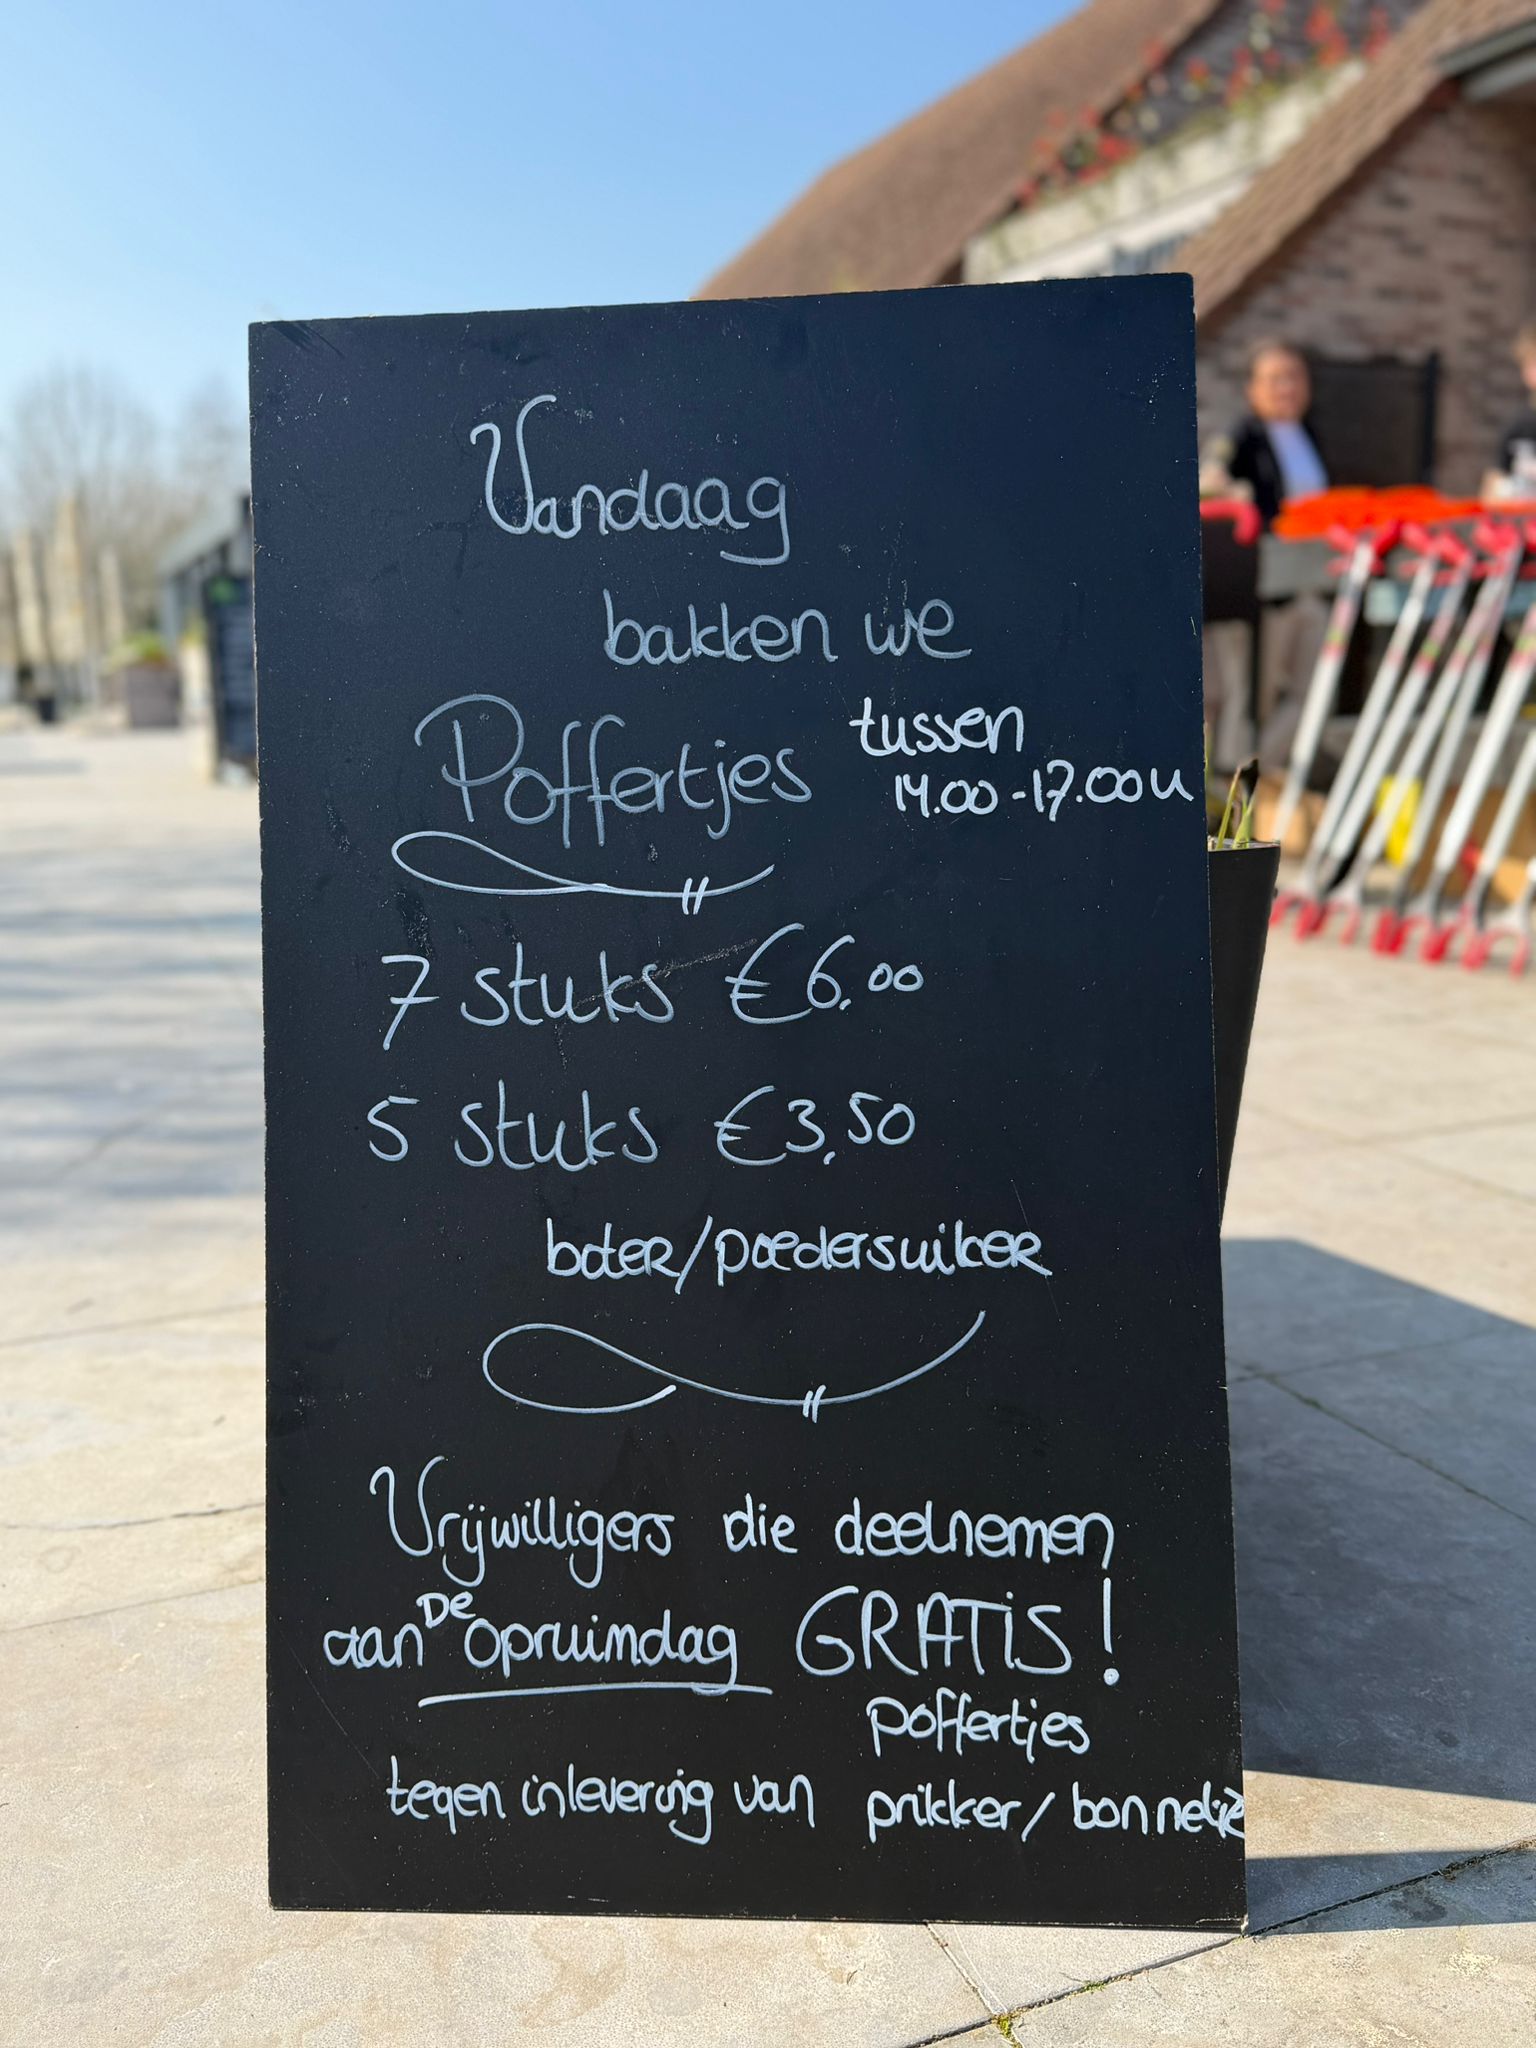 Vandaag
bakken we
Poffertjes tussen
14.00-17.00u
7 stuks €6.00
5 stuks €3,50
boter/poedersuiker
Vrijwilligers die deelnemen
aan De opruimdag GRATIS!
poffertjes
tegen inlevering van prikker/bonnetje